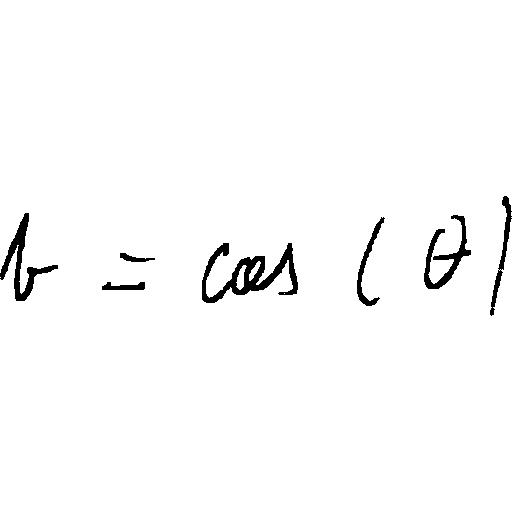 b = cos(θ)